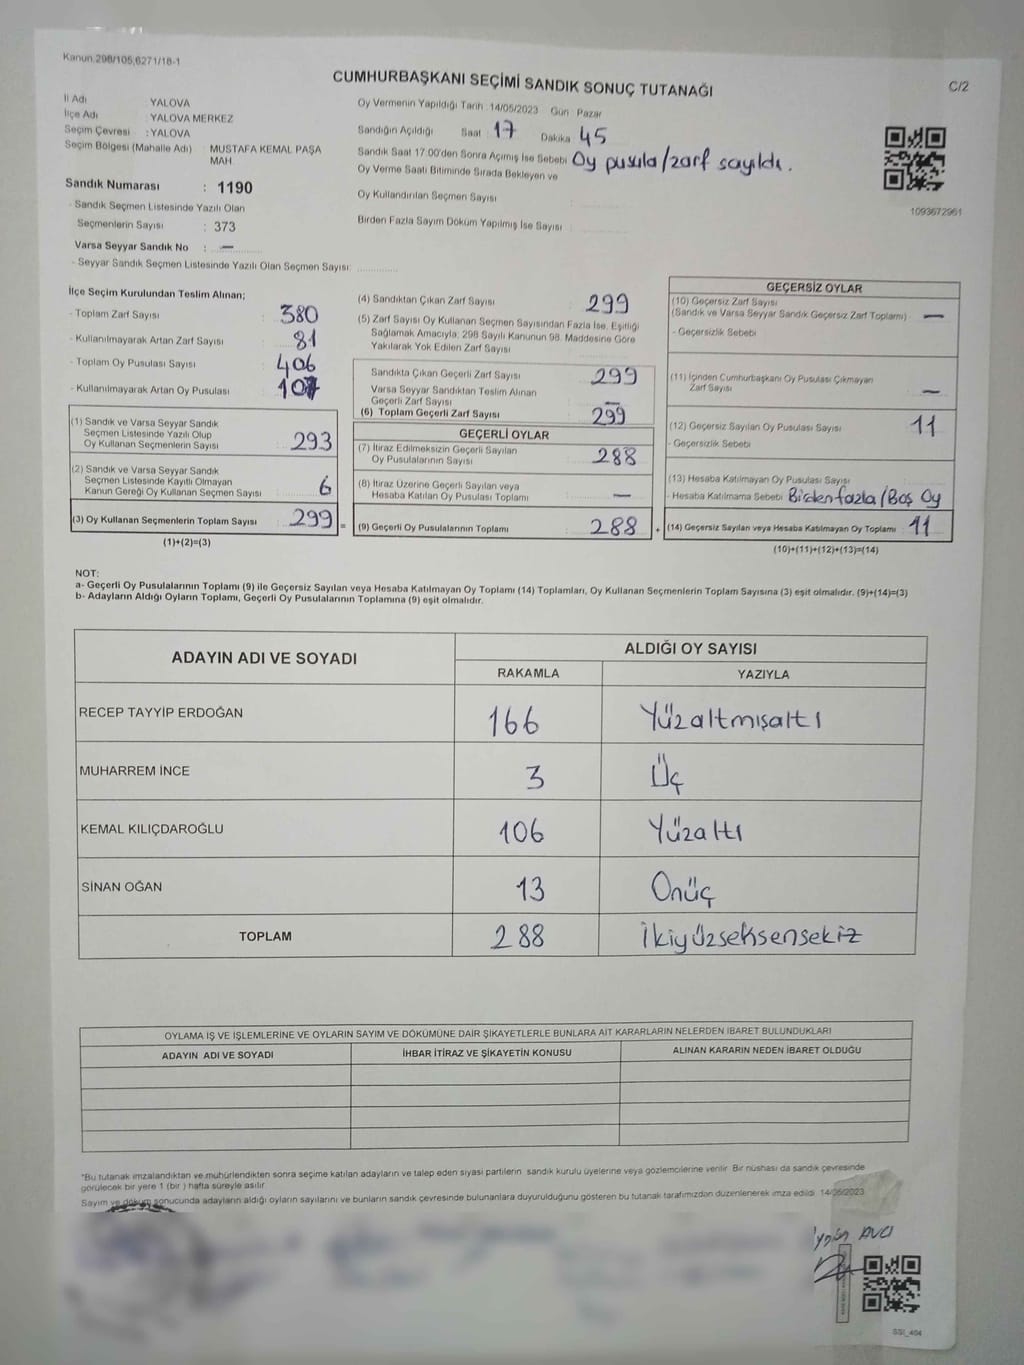 Kanun:298/105,6271/18-1
CUMHURBAŞKANI SEÇİMİ SANDIK SONUÇ TUTANAĞI
C/2
İl Adı : YALOVA
İlçe Adı : YALOVA MERKEZ
Seçim Çevresi : YALOVA
Seçim Bölgesi (Mahalle Adı) : MUSTAFA KEMAL PAŞA
MAH.
Sandık Numarası : 1190
- Sandık Seçmen Listesinde Yazılı Olan
Seçmenlerin Sayısı : 373
Varsa Seyyar Sandık No : —
- Seyyar Sandık Seçmen Listesinde Yazılı Olan Seçmen Sayısı:
Oy Vermenin Yapıldığı Tarih : 14/05/2023 Gün : Pazar
Sandığın Açıldığı Saat : 17 Dakika : 45
Sandık Saat 17:00'den Sonra Açılmış İse Sebebi : Oy pusula/zarf sayıldı.
Oy Verme Saati Bitiminde Sırada Bekleyen ve
Oy Kullandırılan Seçmen Sayısı :
Birden Fazla Sayım Döküm Yapılmış İse Sayısı :
1093672961
İlçe Seçim Kurulundan Teslim Alınan;
- Toplam Zarf Sayısı : 380
- Kullanılmayarak Artan Zarf Sayısı : 81
- Toplam Oy Pusulası Sayısı : 406
- Kullanılmayarak Artan Oy Pusulası : 107
(1) Sandık ve Varsa Seyyar Sandık
Seçmen Listesinde Yazılı Olup
Oy Kullanan Seçmenlerin Sayısı : 293
(2) Sandık ve Varsa Seyyar Sandık
Seçmen Listesinde Kayıtlı Olmayan
Kanun Gereği Oy Kullanan Seçmen Sayısı : 6
(3) Oy Kullanan Seçmenlerin Toplam Sayısı : 299 =
(1)+(2)=(3)
(4) Sandıktan Çıkan Zarf Sayısı : 299
(5) Zarf Sayısı Oy Kullanan Seçmen Sayısından Fazla İse, Eşitliği
Sağlamak Amacıyla; 298 Sayılı Kanunun 98. Maddesine Göre
Yakılarak Yok Edilen Zarf Sayısı :
Sandıkta Çıkan Geçerli Zarf Sayısı : 299
Varsa Seyyar Sandıktan Teslim Alınan
Geçerli Zarf Sayısı : —
(6) Toplam Geçerli Zarf Sayısı : 299
GEÇERLİ OYLAR
(7) İtiraz Edilmeksizin Geçerli Sayılan
Oy Pusulalarının Sayısı : 288
(8) İtiraz Üzerine Geçerli Sayılan veya
Hesaba Katılan Oy Pusulası Toplamı : —
(9) Geçerli Oy Pusulalarının Toplamı : 288 +
GEÇERSİZ OYLAR
(10) Geçersiz Zarf Sayısı
(Sandık ve Varsa Seyyar Sandık Geçersiz Zarf Toplamı) : —
- Geçersizlik Sebebi :
(11) İçinden Cumhurbaşkanı Oy Pusulası Çıkmayan
Zarf Sayısı : —
(12) Geçersiz Sayılan Oy Pusulası Sayısı : 11
- Geçersizlik Sebebi :
(13) Hesaba Katılmayan Oy Pusulası Sayısı :
- Hesaba Katılmama Sebebi : Birden fazla/Boş Oy
(14) Geçersiz Sayılan veya Hesaba Katılmayan Oy Toplamı : 11
(10)+(11)+(12)+(13)=(14)
NOT:
a- Geçerli Oy Pusulalarının Toplamı (9) ile Geçersiz Sayılan veya Hesaba Katılmayan Oy Toplamı (14) Toplamları, Oy Kullanan Seçmenlerin Toplam Sayısına (3) eşit olmalıdır. (9)+(14)=(3)
b- Adayların Aldığı Oyların Toplamı, Geçerli Oy Pusulalarının Toplamına (9) eşit olmalıdır.
ADAYIN ADI VE SOYADI ALDIĞI OY SAYISI
RAKAMLA YAZIYLA
RECEP TAYYİP ERDOĞAN 166 Yüzaltmışaltı
MUHARREM İNCE 3 Üç
KEMAL KILIÇDAROĞLU 106 Yüzaltı
SİNAN OĞAN 13 Onüç
TOPLAM 288 İkiyüzseksensekiz
OYLAMA İŞ VE İŞLEMLERİNE VE OYLARIN SAYIM VE DÖKÜMÜNE DAİR ŞİKAYETLERLE BUNLARA AİT KARARLARIN NELERDEN İBARET BULUNDUKLARI
ADAYIN ADI VE SOYADI İHBAR İTİRAZ VE ŞİKAYETİN KONUSU ALINAN KARARIN NEDEN İBARET OLDUĞU
*Bu tutanak imzalandıktan ve mühürlendikten sonra seçime katılan adayların ve talep eden siyasi partilerin sandık kurulu üyelerine veya gözlemcilerine verilir. Bir nüshası da sandık çevresinde
görülecek bir yere 1 (bir) hafta süreyle asılır.
Sayım ve döküm sonucunda adayların aldığı oyların sayılarını ve bunların sandık çevresinde bulunanlara duyurulduğunu gösteren bu tutanak tarafımızdan düzenlenerek imza edildi. 14/05/2023
AVCI
SSİ_404